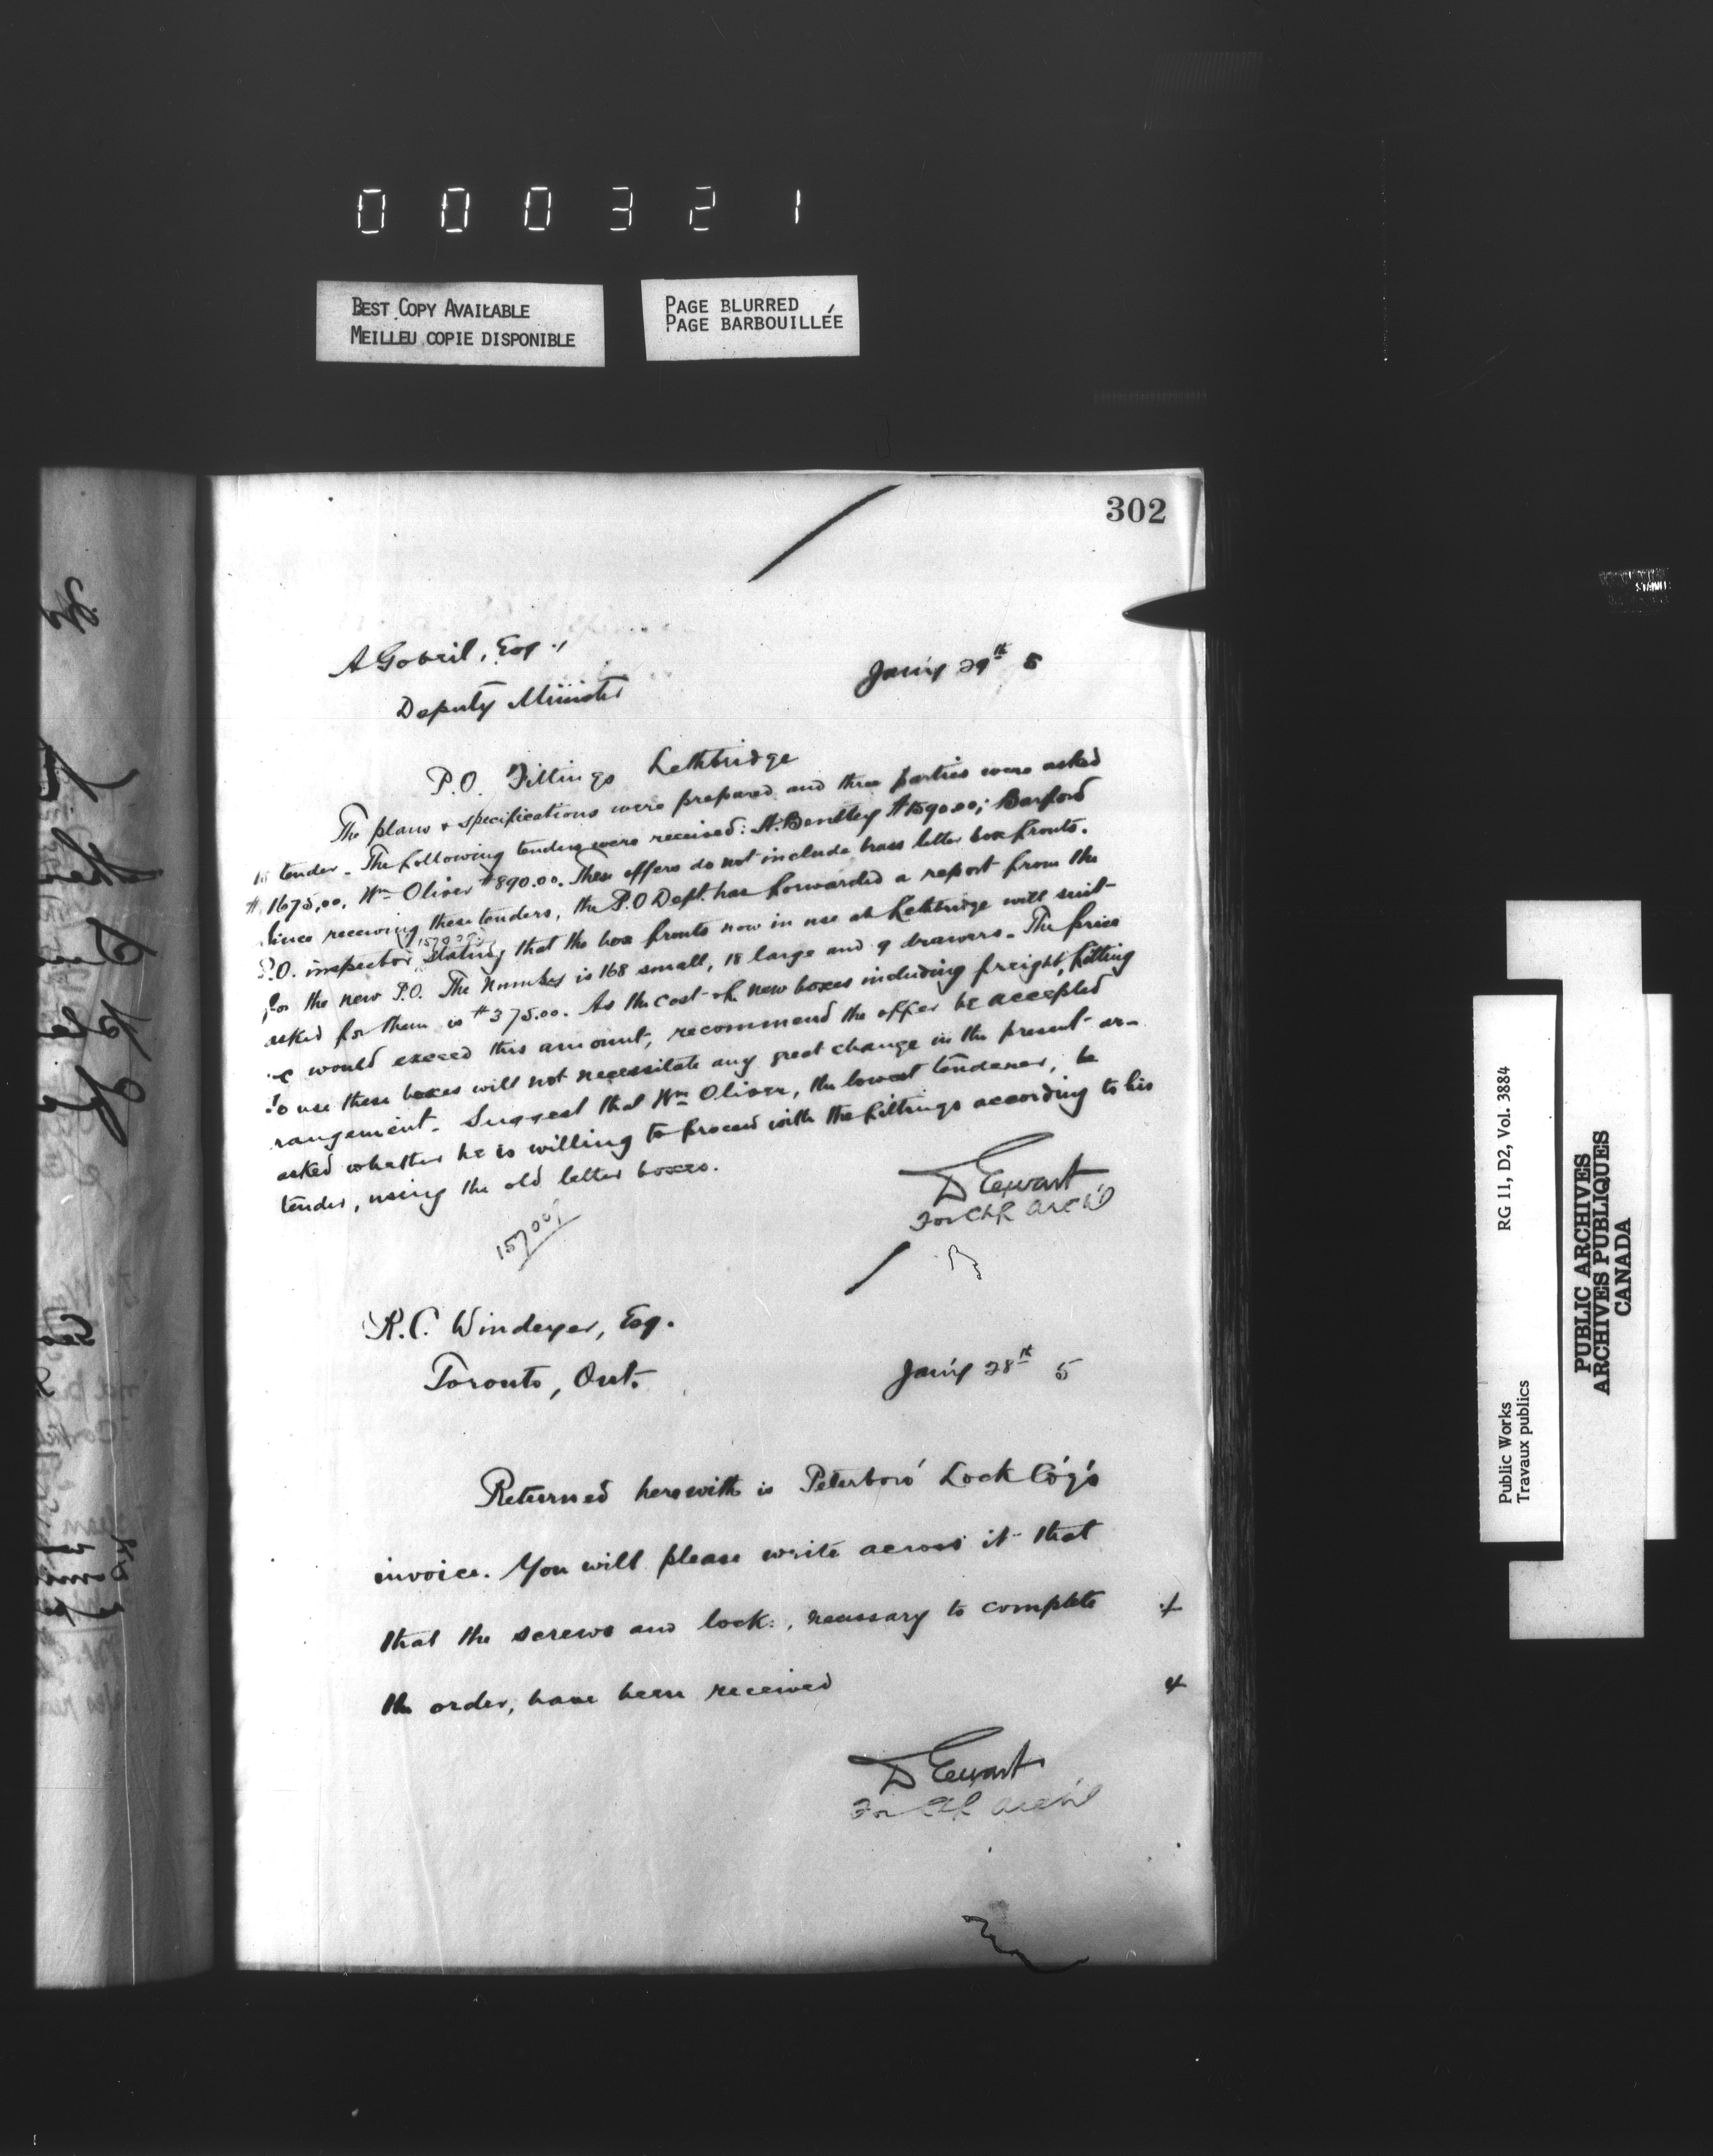 000321
BEST COPY AVAILABLE
MEILLEU COPIE DISPONIBLE
PAGE BLURRED
PAGE BARBOUILLÉE
302
A Gobeil, Esq.,
Jan'y 29th 5
Deputy Minister
P.O. Fittings Lethbridge
The plans & specifications were prepared and three parties were asked
to tender. The following tenders were received: A. Bentley $1590.00; Barford
$1675.00, Wm Oliver $890.00. These offers do not include brass letter box fronts.
Since receiving these tenders, the P.O Dept. has forwarded a report from the
P.O. inspector (157009) stating that the box fronts now in use at Lethbridge will suit
for the new P.O. The number is 168 small, 18 large and 9 drawers. The price
asked for them is $375.00. As the cost of new boxes including freight, fitting
&c would exceed this amount, recommend the offer be accepted
To use these boxes will not necessitate any great change in the present ar-
rangement. Suggest that Wm Oliver, the lowest tenderer, be
asked whether he is willing to proceed with the fittings according to his
tender, using the old letter boxes.
D Ewart
For Chf Arch't
R.C. Windeyer, Esq.
Toronto, Ont.
Jan'y 28th 5
Returned herewith is Peterboro' Lock Co'y's
invoice. You will please write across it that
that the screws and lock, necessary to complete
the order, have been received
D Ewart
For Chf Arch't
Public Works
Travaux publics
RG 11, D2, Vol. 3884
PUBLIC ARCHIVES
ARCHIVES PUBLIQUES
CANADA